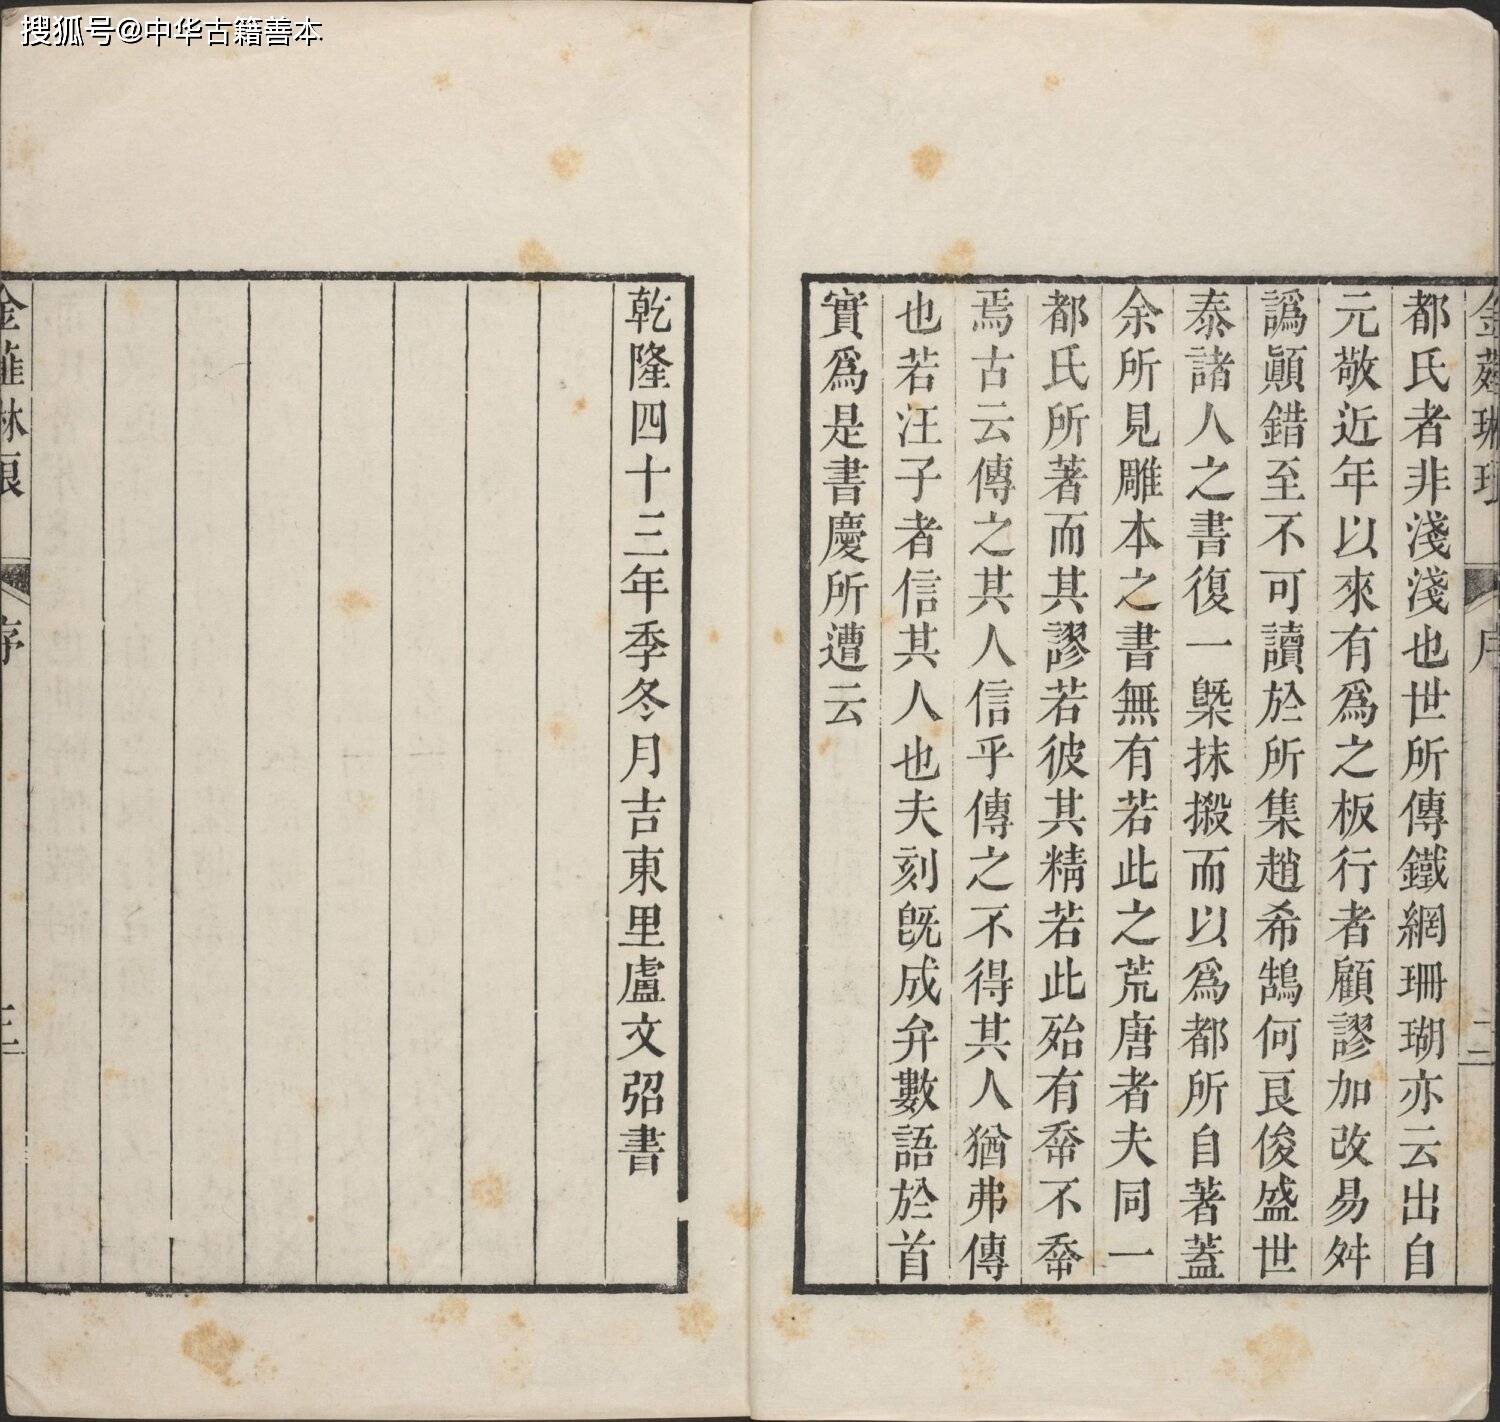 搜狐号@中华古籍善本
金薤琳琅
序
二
都氏者非淺淺也世所傳鐵網珊瑚亦云出自
元敬近年以來有爲之板行者顧謬加改易舛
譌顚錯至不可讀於所集趙希鵠何良俊盛世
泰諸人之書復一槩抹摋而以爲都所自著蓋
余所見雕本之書無有若此之荒唐者夫同一
都氏所著而其謬若彼其精若此殆有㡀不㡀
焉古云傳之其人信乎傳之不得其人猶弗傳
也若汪子者信其人也夫刻旣成弁數語於首
實爲是書慶所遭云
乾隆四十三年季冬月吉東里盧文弨書
金薤琳琅
序
三